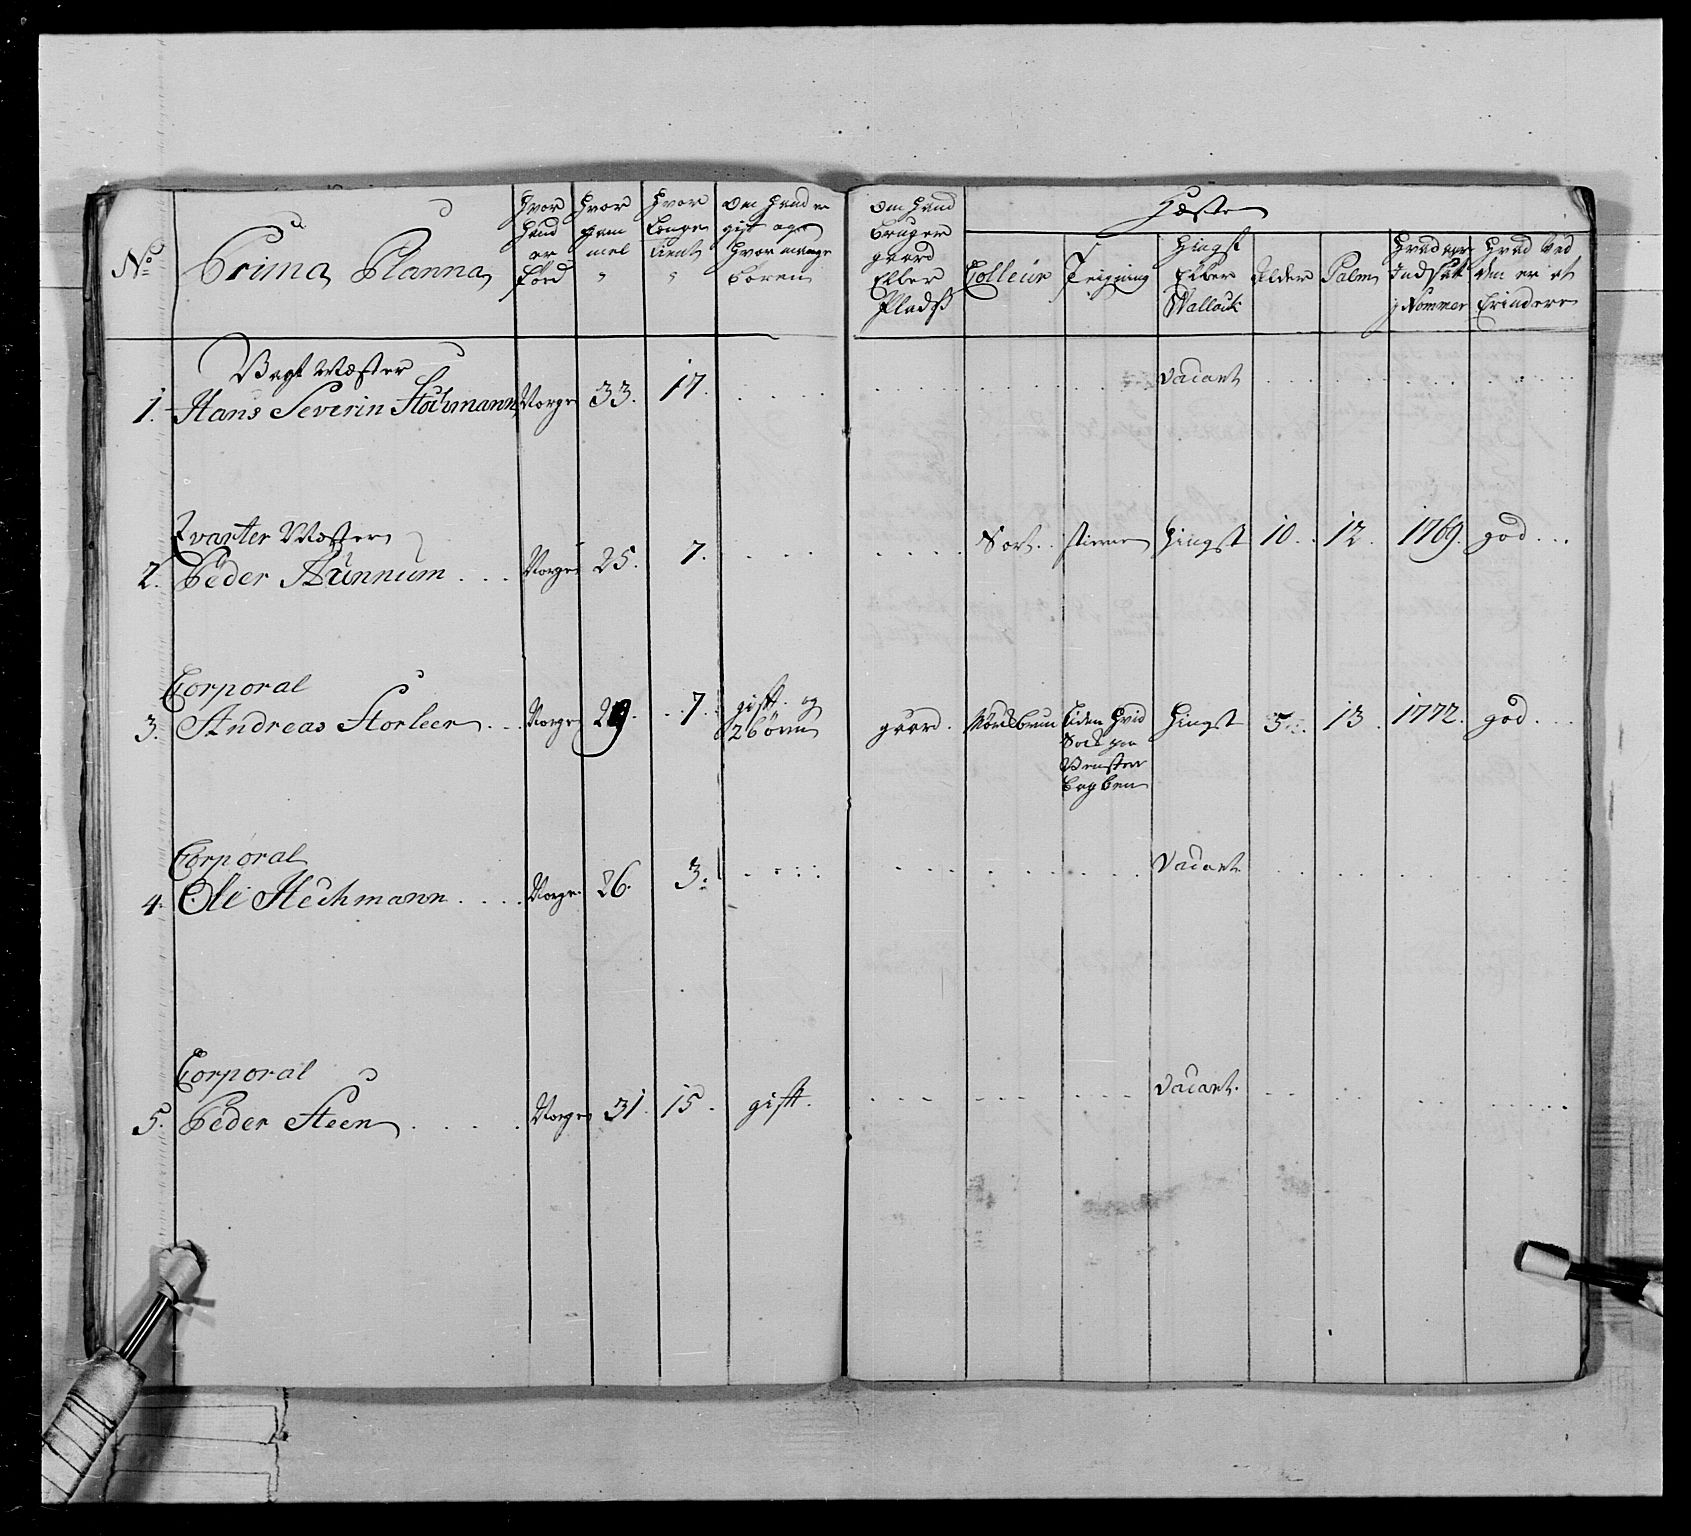 No
Prima Planna
Hvor
Hand
er
Född
Hvor
gam
mel
"
Hvor
Lenge
tient
"
om Hand er
gift og
Hvor mange
Børen
om Hand
bruger
gaard
Eller
Pladss
Hæste
Colleur
Teigning
Hingst
Eller
Wallack
Alder
Palm
Hvad aar
Indsat
j Nommer
Hvad ved
dem er at
Erindere
Vagt Mæster
1. Hans Severin Stockmann Norge 33. 17. Vacant
Qvarter Mæster
2. Peder Aünnum Norge 25. 7. Sort stierne Hingst 10. 12. 1769. god
Corporal
3. Andreas Storleer Norge 29 7. gift og
2 børn gaard. Mörkbrun Liden Hvid
Sock paa
Venster
bagben Hingst 5. 13. 1772. god
Corporal
4. Ole Heckmann Norge 26. 3. Vacant
Corporal
5. Peder Steen Norge 31. 15. gift. Vacant.